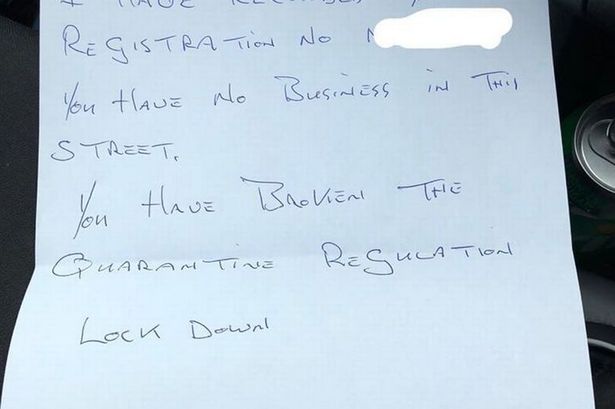 I HAVE RECORDED
REGISTRATION NO
YOU HAVE NO BUSINESS IN THIS
STREET.
YOU HAVE BROKEN THE
QUARANTINE REGULATION
LOCK DOWN